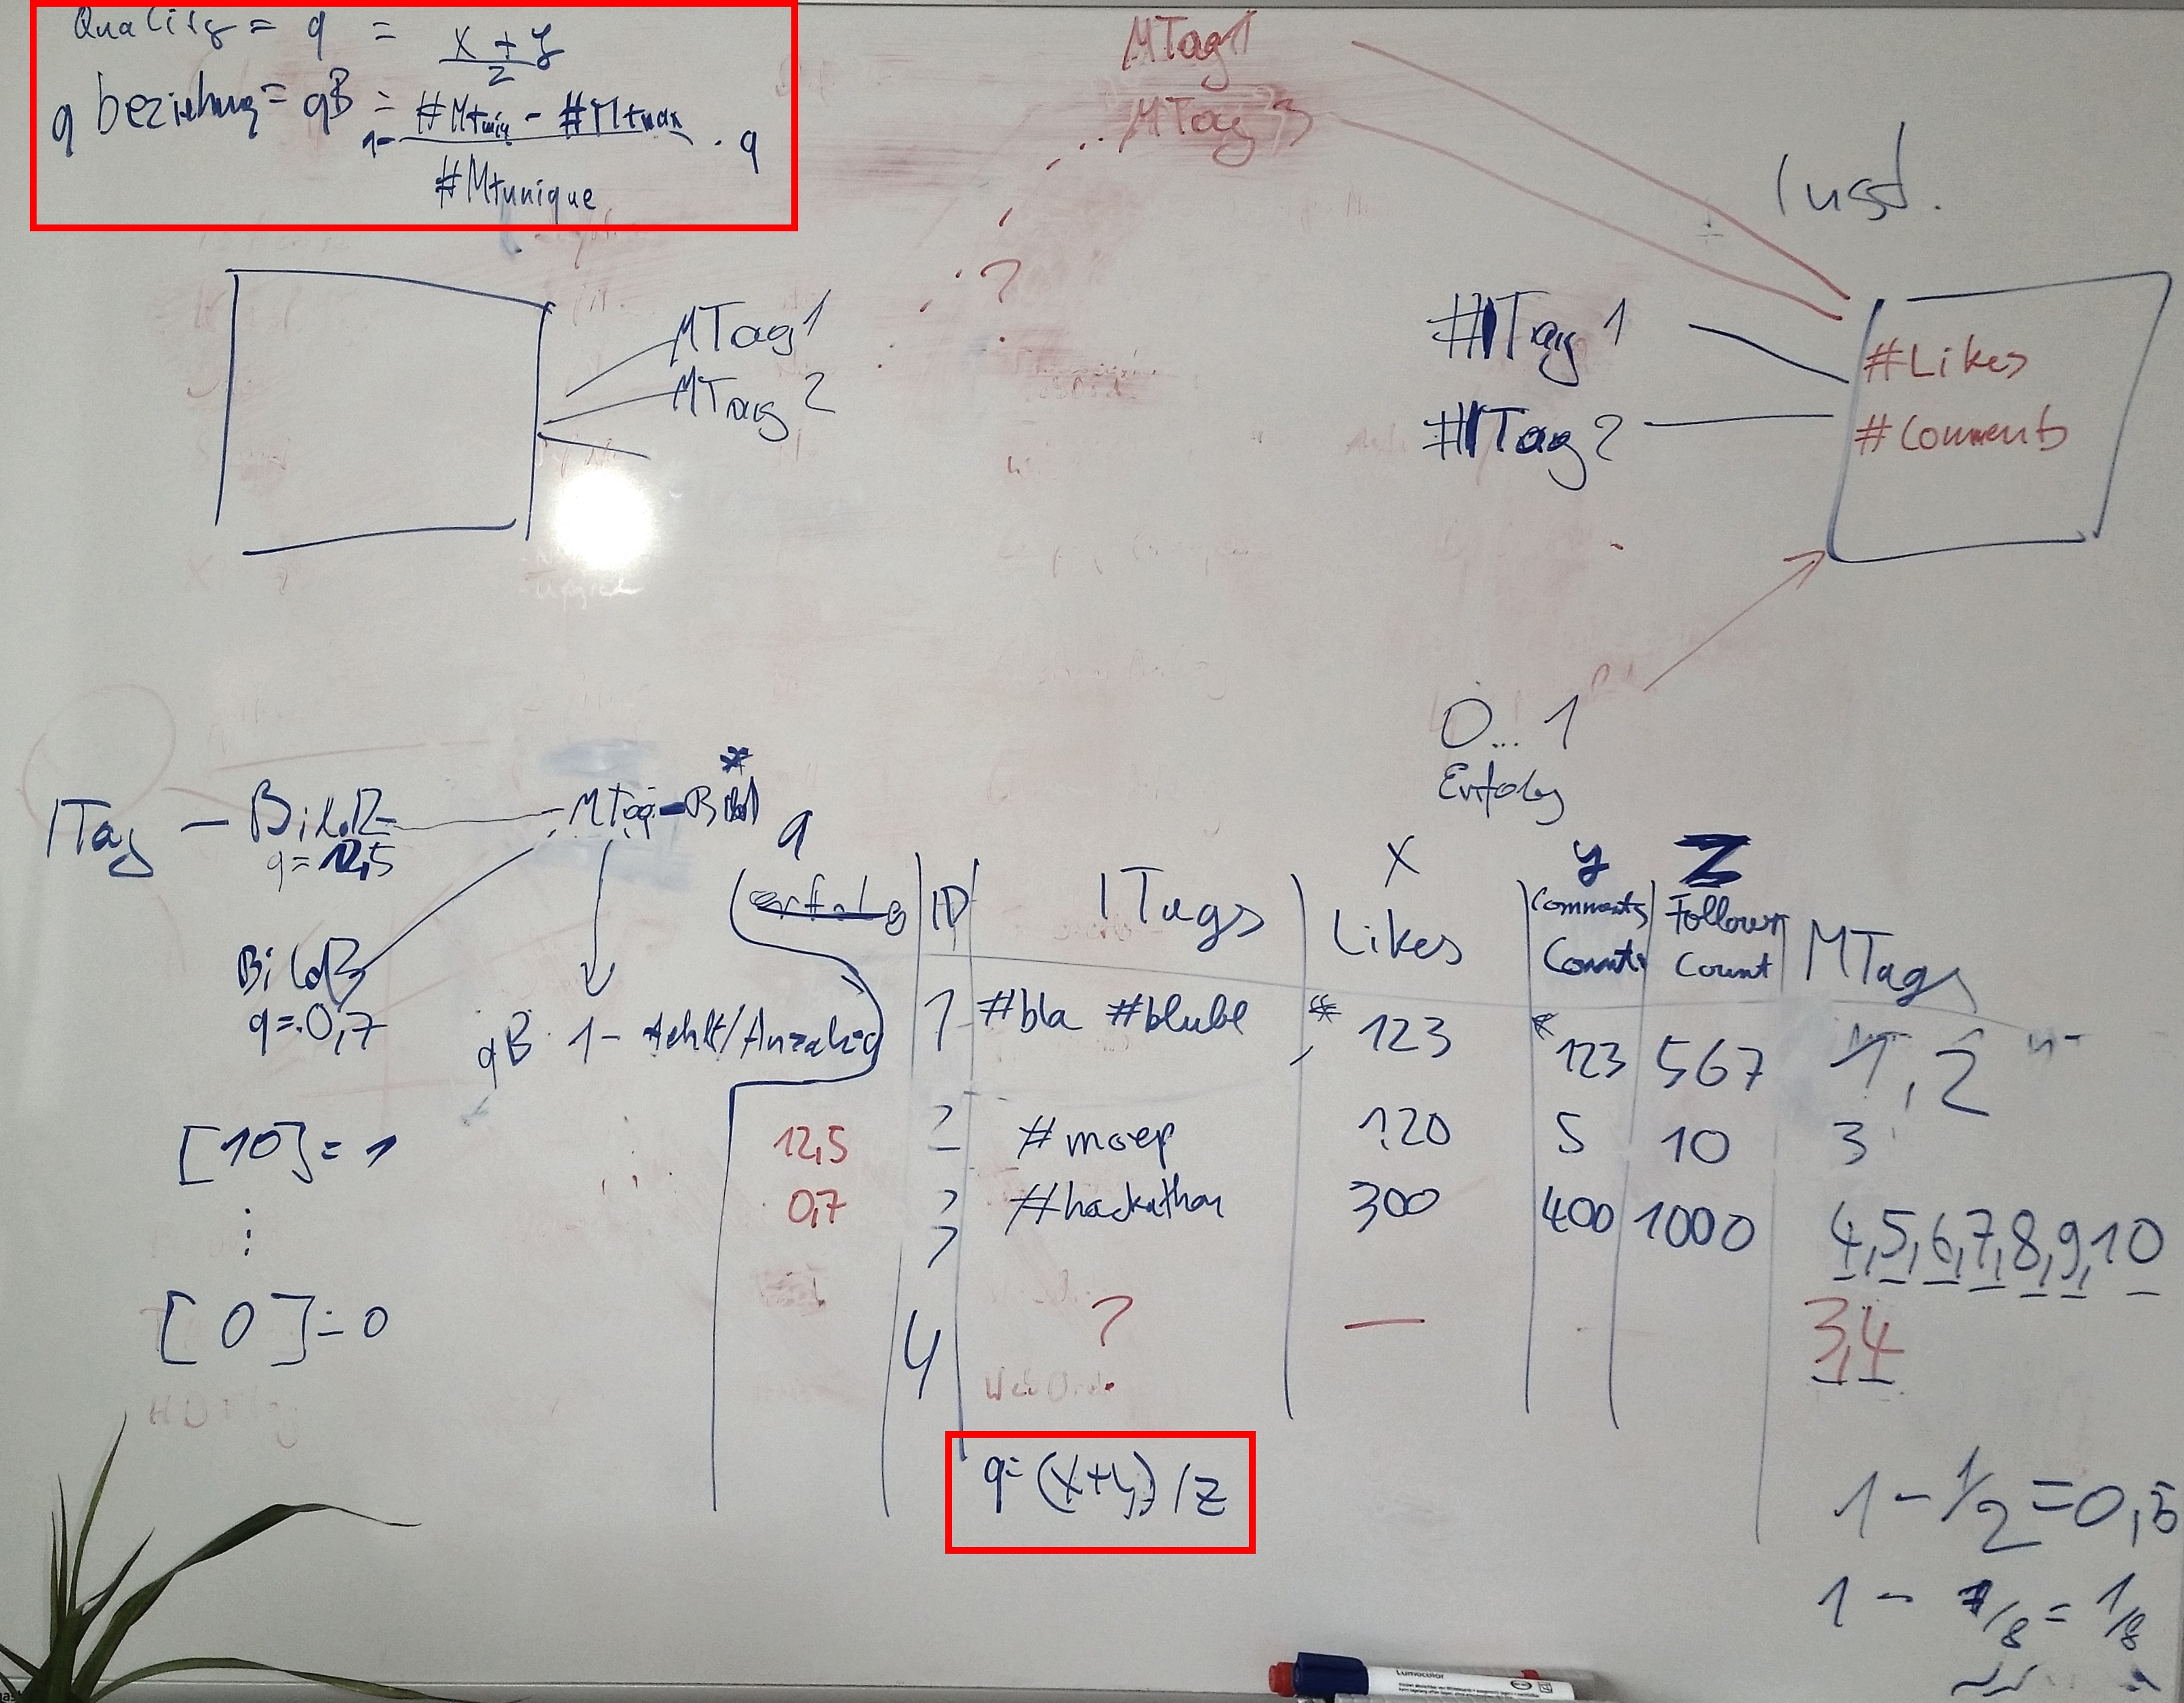 Quality = q = x + y / z
q beziehung = qB = 1- #Mtmin - #Mtmax / #Mtunique · q
MTag1
MTag 3
Inst.
?
MTag1
MTag2
#ITag 1
#ITag 2
#Likes
#Comments
0...1
Erfolg
ITag - Bild2 - MTag-Bild *
q = 12,5
Bild3
q = 0,7
qB 1- Fehlt/Anzahl·q
[10] = 1
⋮
[0] = 0
q x y Z
erfolg ID ITags Likes Comments Count Follower Count MTags
1 #bla #blube * 123 * 123 567 1, 2
12,5 2 #moep 120 5 10 3
0,7 3 #hackathon 300 400 1000 4,5,6,7,8,9,10
4 ? — 3,4
q = (x+y) / z
1 - 1/2 = 0,5
1 - 7/8 = 1/8
Lumocolor